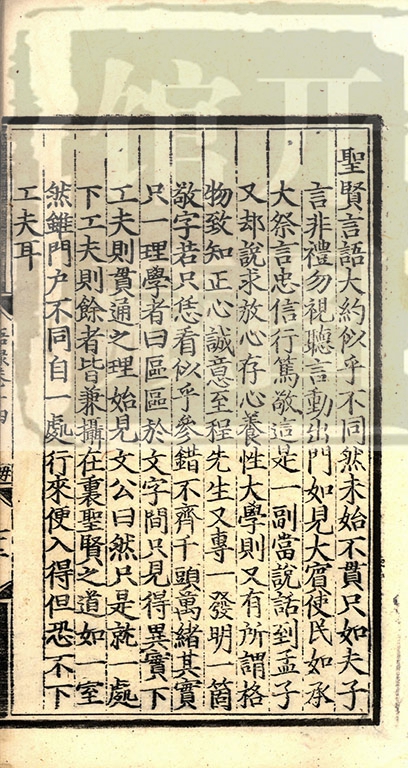 聖賢言語大約似乎不同然未始不貫只如夫子
言非禮勿視聽言動出門如見大賓使民如承
大祭言忠信行篤敬這是一副當說話到孟子
又却說求放心存心養性大學則又有所謂格
物致知正心誠意至程先生又專一發明一箇
敬字若只恁看似乎參錯不齊千頭萬緒其實
只一理學者曰區區於文字間只見得異實下
工夫則貫通之理始見文公曰然只是就一處
下工夫則餘者皆兼攝在裏聖賢之道如一室
然雖門户不同自一處行來便入得但恐不下
工夫耳